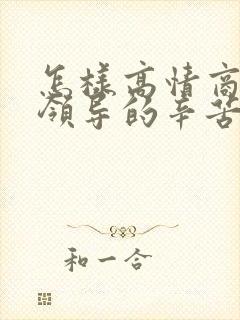 怎样高情商
领导的辛苦
和一合